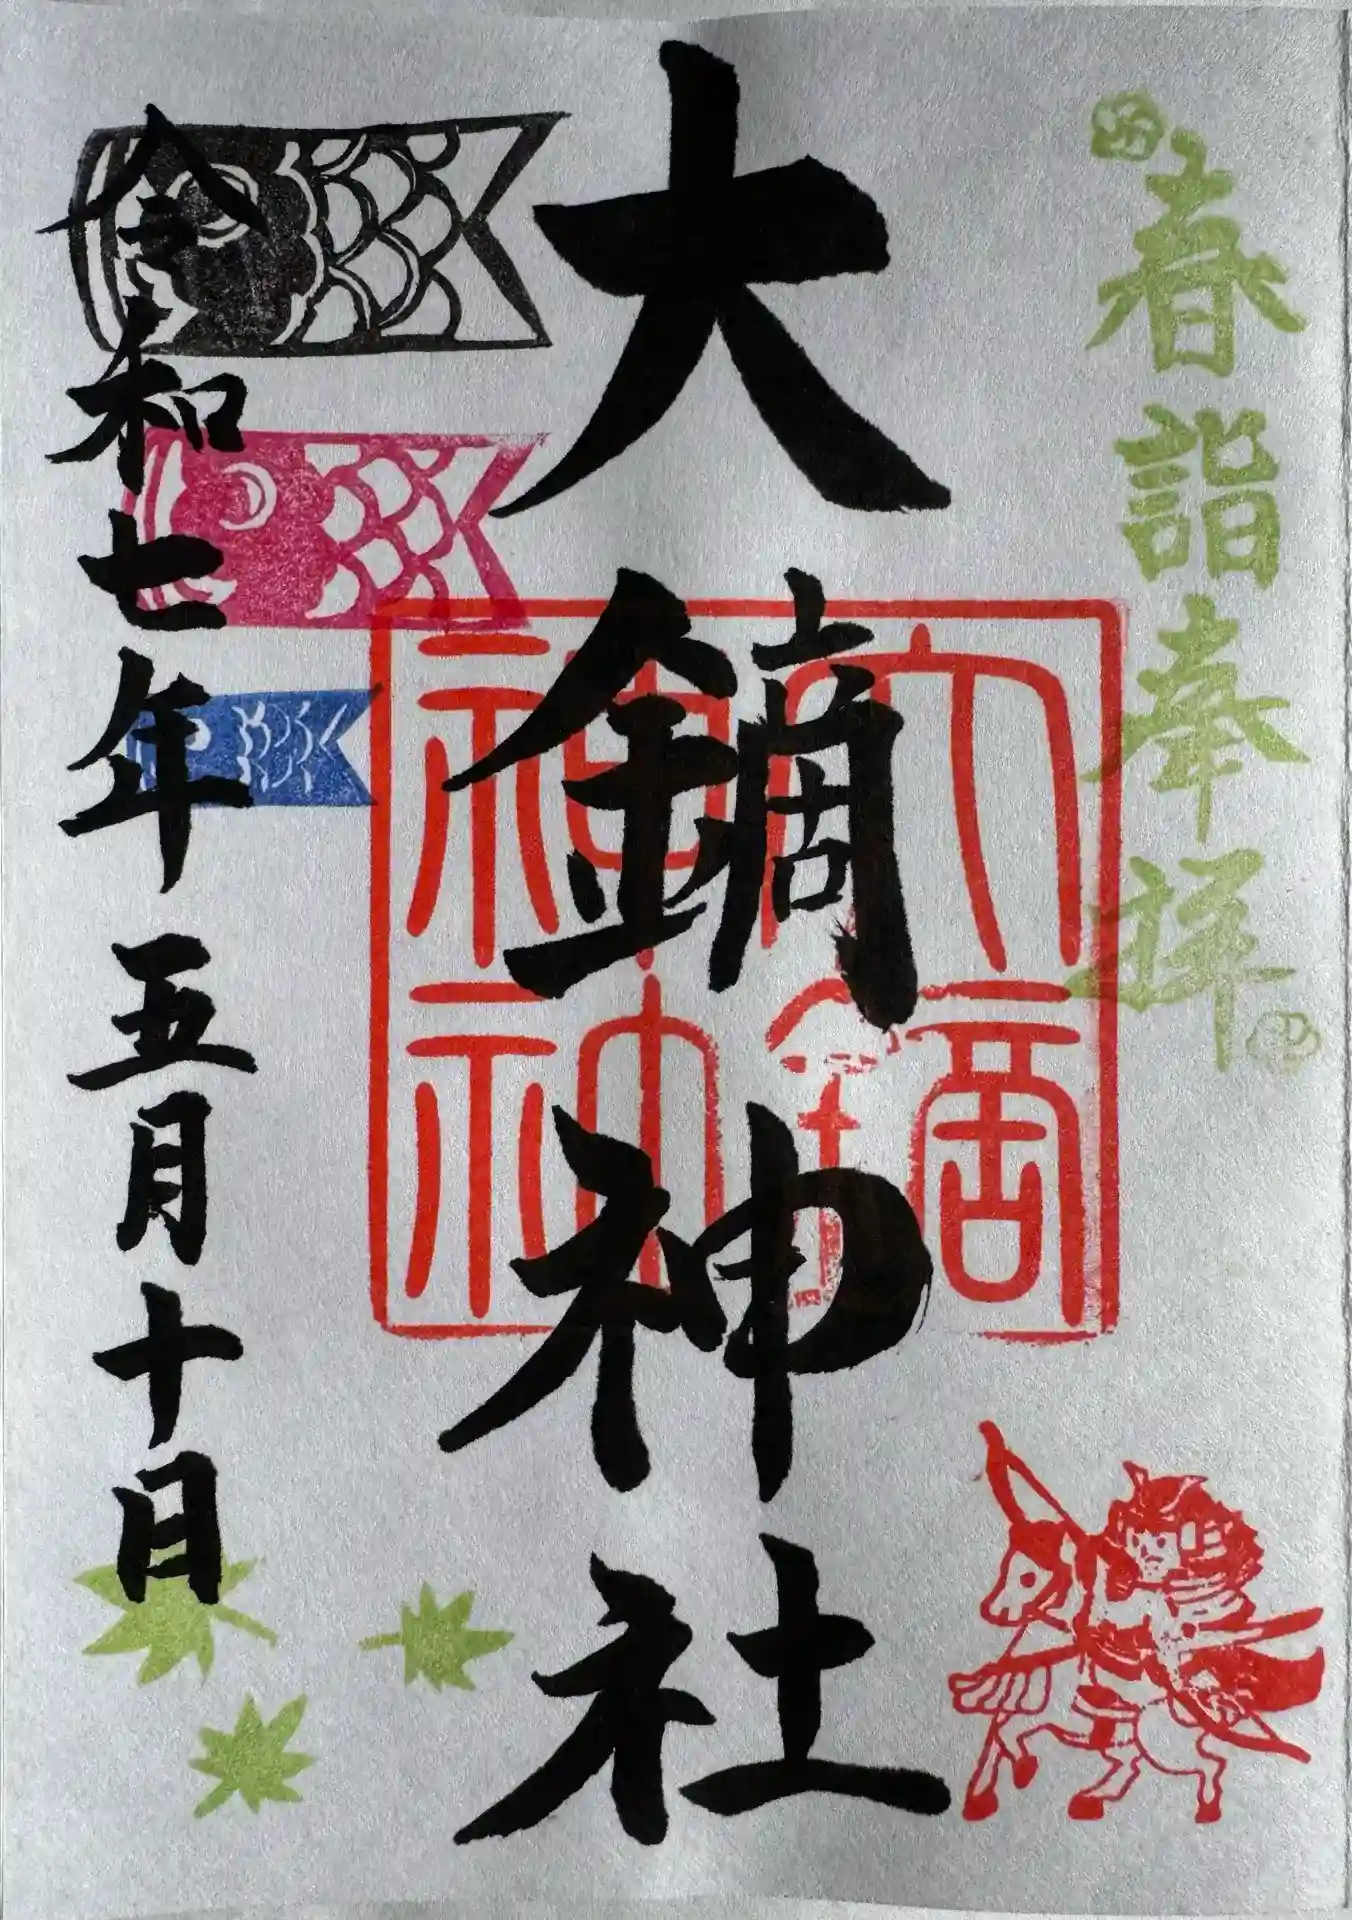 春詣奉拝
大鏑神社
大鏑神社神社
令和七年五月十日